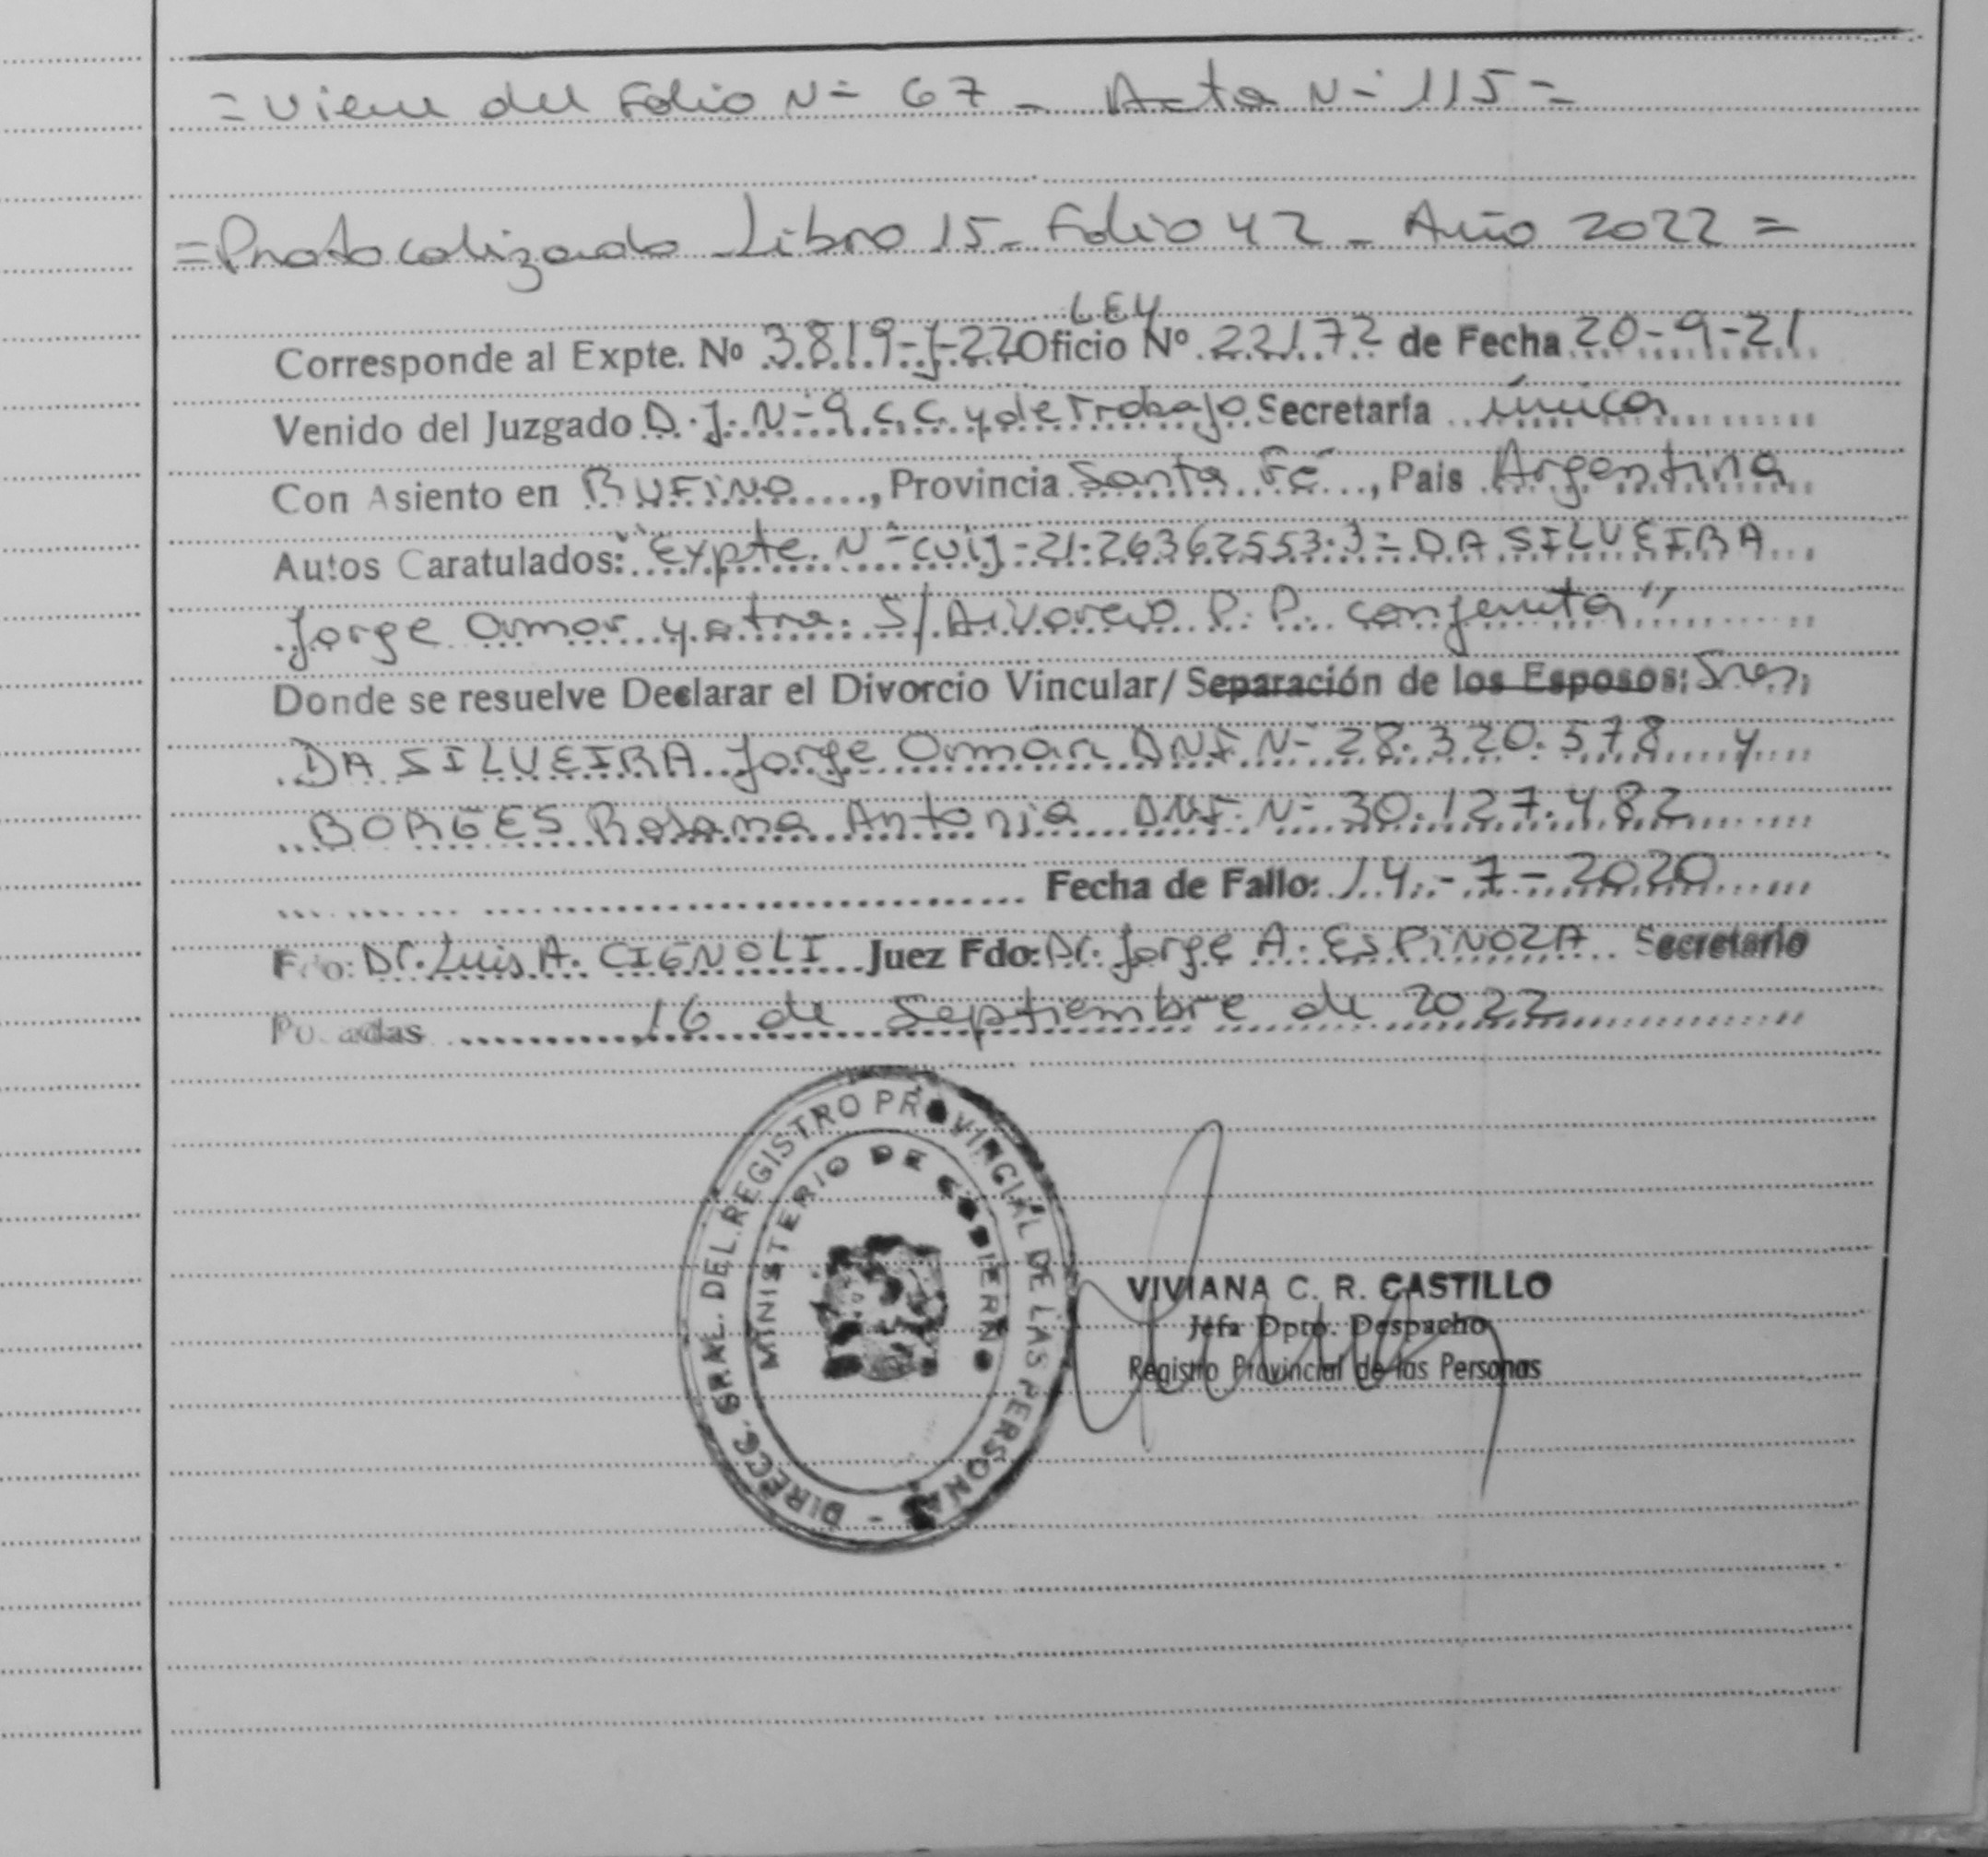 = Viene del Folio Nº 67 - Acta Nº 115 =
= Protocolizado Libro 15 - Folio 42 - Año 2022 =
LEY
Corresponde al Expte. Nº 3819-J-22 Oficio Nº 22172 de Fecha 20-9-21
Venido del Juzgado D.J. Nº 9 C.C. y de Trabajo Secretaría única
Con Asiento en RUFINO, Provincia Santa Fé, Pais Argentina
Autos Caratulados: "Expte. Nº cuij-21-26362553-3 = DA SILVEIRA
Jorge Omar y otra. S/ Divorcio P.P. conjunta"
Donde se resuelve Declarar el Divorcio Vincular/ Separación de los Esposos: Sres.
DA SILVEIRA Jorge Omar DNI Nº 28.320.578 y
BORGES Rosana Antonia DNI. Nº 30.127.482
Fecha de Fallo: 14-7-2020
Fdo: Dr. Luis A. CIGNOLI Juez Fdo: Dr. Jorge A. ESPINOZA Secretario
Po. adas 16 de Septiembre de 2022
DIRECC. GRAL. DEL REGISTRO PROVINCIAL DE LAS PERSONAS -
MINISTERIO DE GOBIERNO
VIVIANA C. R. CASTILLO
Jefa Dpto. Despacho
Registro Provincial de las Personas